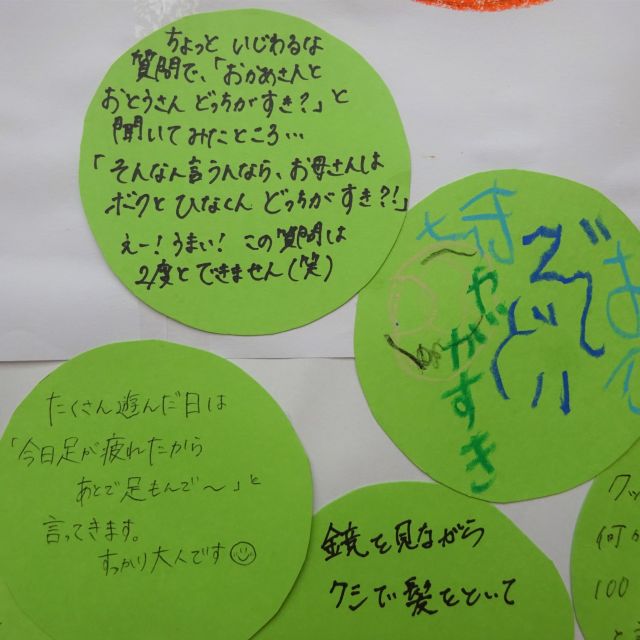 ちょっと いじわるな
質問で、「おかあさんと
おとうさん どっちがすき？」と
聞いてみたところ…
「そんなん言うんなら、お母さんは
ボクと ひなくん どっちがすき？！」
えー！うまい！この質問は
2度とできません（笑）
やがすき
たくさん遊んだ日は
「今日足が疲れたから
あとで足もんで〜」と
言ってきます。
すっかり大人です
鏡を見ながら
クシで髪をといて
クッ
何か
100